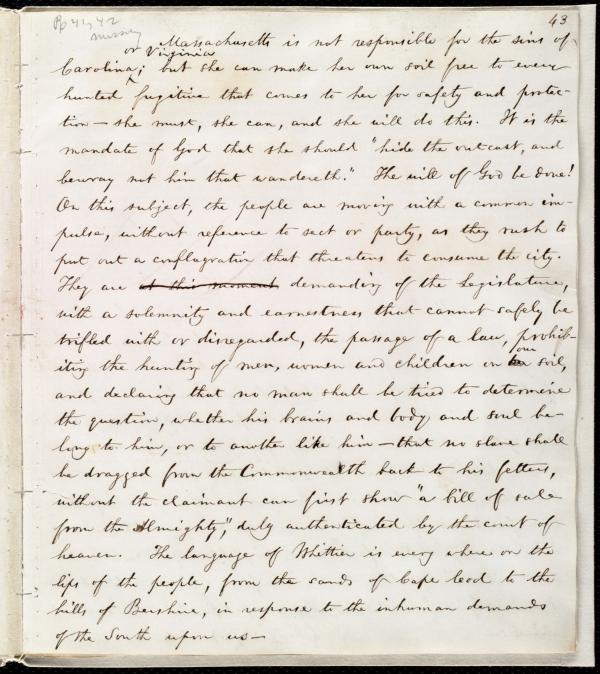 Pp 41, 42
missing
43
Massachusetts is not responsible for the sins of
or Virginia
Carolina; but she can make her own soil free to every
hunted fugitive that comes to her for safety and protec-
tion — she must, she can, and she will do this. It is the
mandate of God that she should "hide the outcast, and
bewray not him that wandereth." The will of God be done!
On this subject, the people are moving with a common im-
pulse, without reference to sect or party, as they rush to
put out a conflagration that threatens to consume the city.
They are at this moment demanding of the Legislature,
with a solemnity and earnestness that cannot safely be
trifled with or disregarded, the passage of a law, prohib-
iting the hunting of men, women and children on our soil,
and declaring that no man shall be tried to determine
the question, whether his brains and body and soul be-
long to him, or to another like him — that no slave shall
be dragged from the Commonwealth back to his fetters,
without the claimant can first show "a bill of sale
from the Almighty," duly authenticated by the court of
heaven. The language of Whittier is every where on the
lips of the people, from the sands of Cape Cod to the
hills of Bershire, in response to the inhuman demands
of the South upon us —